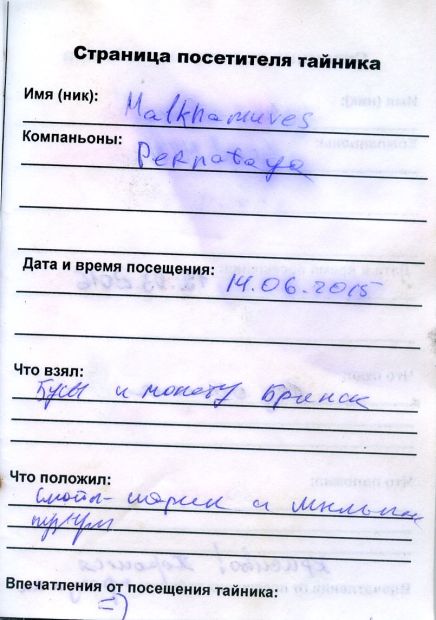 Страница посетителя тайника
Имя (ник): Malkhamuves
Компаньоны: Pernataya
Дата и время посещения: 14.06.2015
Что взял:
Бусы и монету Брянск
Что положил:
шарик и
Впечатления от посещения тайника:
=)